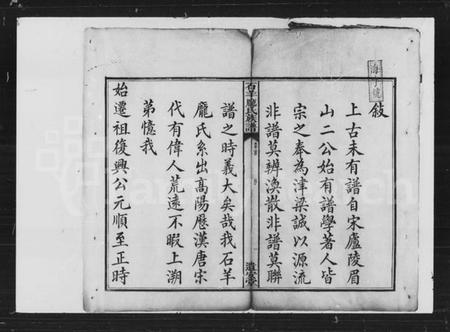 敍
上古未有譜自宋廬陵眉
山二公始有譜學著人皆
宗之奉為津梁誠以源流
非譜莫辨渙散非譜莫聯
石羊龐氏族譜
譜之時義大矣哉我石羊
龐氏系出高陽歷漢唐宋
代有偉人荒遠不暇上溯
第憶我
始遷祖復興公元順至正時